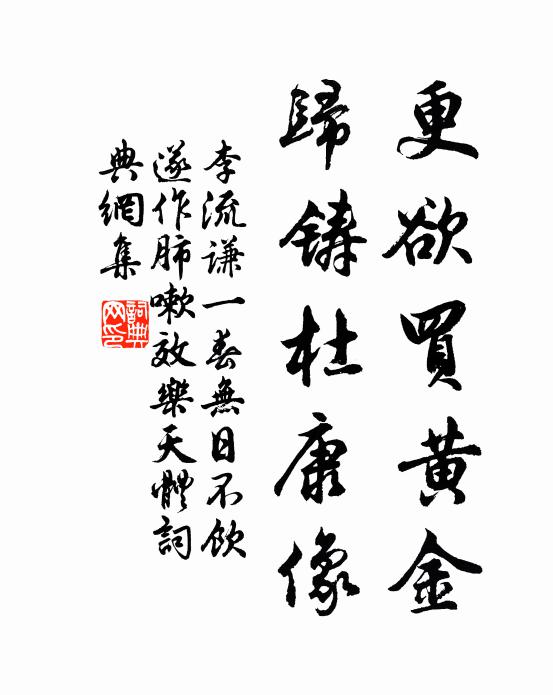 更欲買黃金
歸鑄杜康像
李流謙一春無日不飲
遂作肺嗽效樂天體詞
典網集
詞典
网印